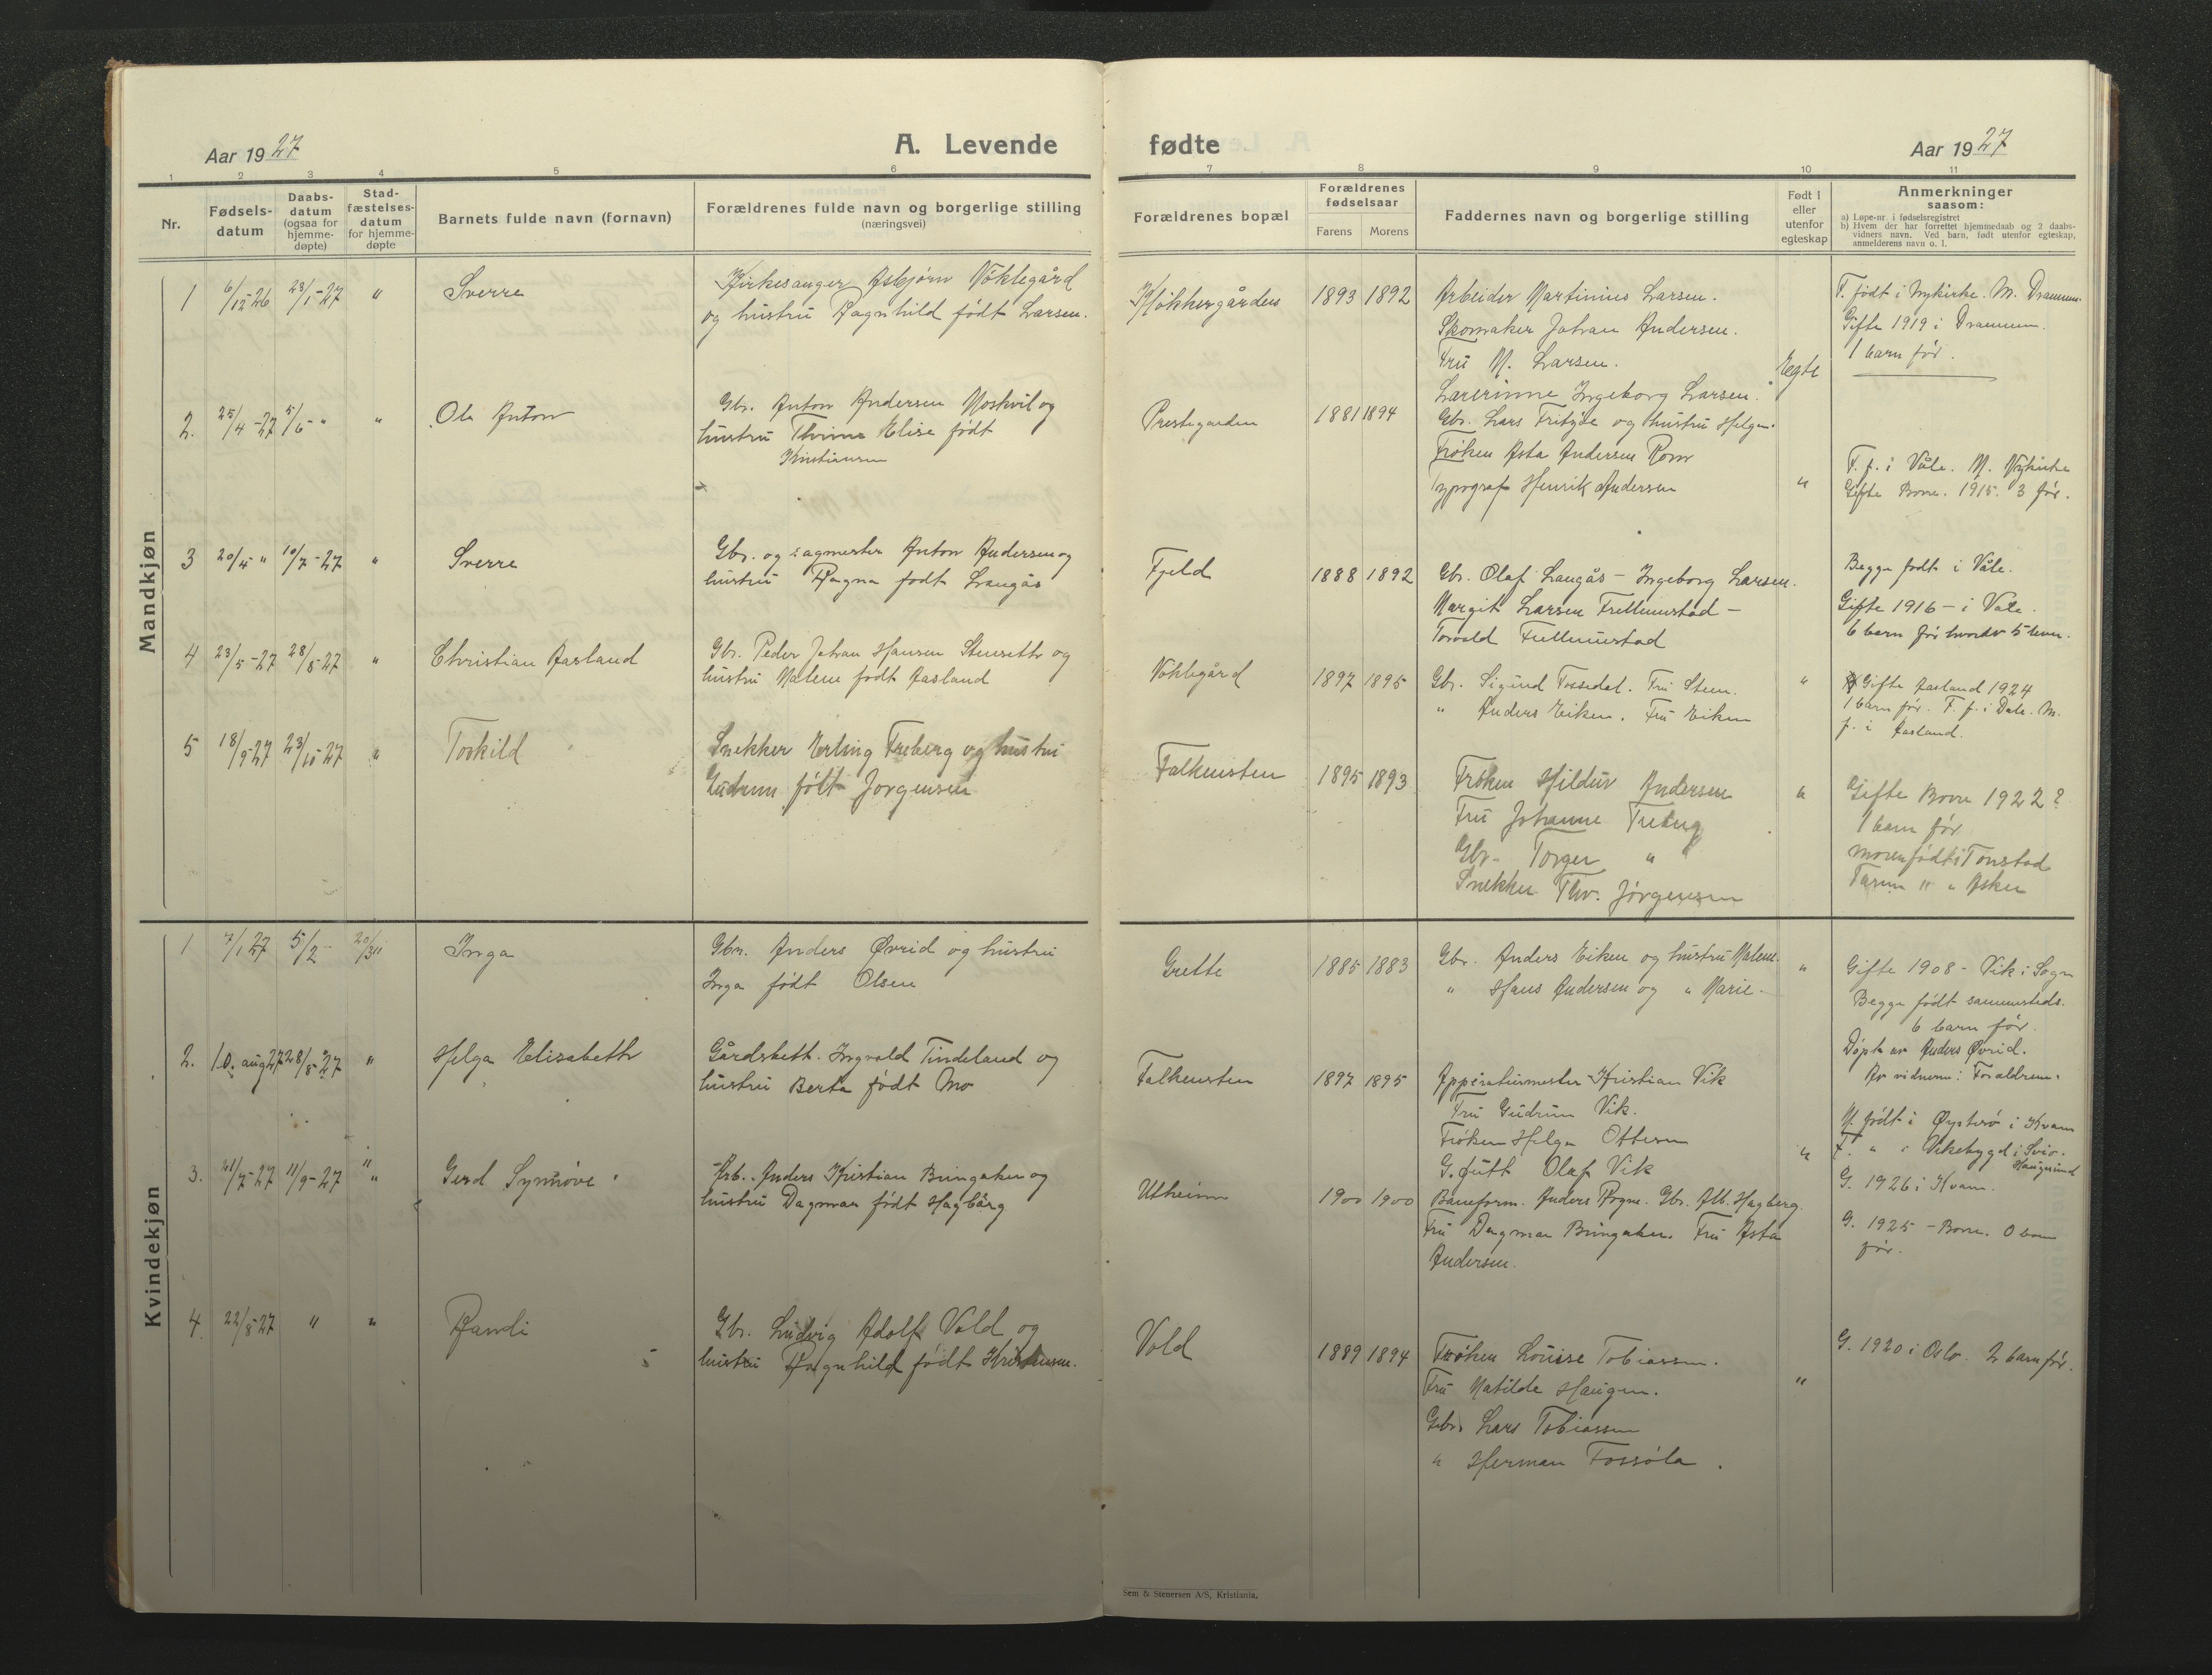 Aar 1927
A. Levende
fødte
Aar 1927
1 2 3 4 5 6 7 8 9 10 11
Nr.
Fødsels-
datum
Daabs-
datum
(ogsaa for
hjemme-
døpte)
Stad-
fæstelses-
datum
for hjemme-
døpte
Barnets fulde navn (fornavn)
Forældrenes fulde navn og borgerlige stilling
(næringsvei)
Forældrenes bopæl
Forældrenes
fødselsaar
Farens
Morens
Faddernes navn og borgerlige stilling
Født i
eller
utenfor
egteskap
Anmerkninger
saasom:
a) Løpe-nr. i fødselsregistret
b) Hvem der har forrettet hjemmedaab og 2 daabs-
vidners navn. Ved barn, født utenfor egteskap,
anmelderens navn o. l.
Mandkjøn
1 6/12-26 23/1-27 "
Sverre
Kirkesanger Asbjørn Nøklegård
og hustru Ragnhild født Larsen.
Klokkergården
1893 1892
Arbeider Martinius Larsen.
Skomaker Johan Andersen.
Fru M. Larsen.
Lærerinne Ingeborg Larsen.
Egte
F. født i Nykirke. M. Drammen.
Gifte 1919 i Drammen.
1 barn før.
2. 25/4-27 5/6- " "
Ole Anton
Gbr. Anton Andersen Moskvil og
hustru Thrine Elise født
Kristiansen
Prestegarden
1881 1894
Gbr. Lars Fritzøe og hustru Helga.
Frøken Asta Andersen Rom
Typograf Henrik Andersen
"
F. f. i Våle. M. Nykirke
Gifte Borre. 1915. 3 før.
3 20/4 " 10/7-27 "
Sverre
Gbr. og sagmester Anton Andersen og
hustru Ragna født Langås
Fjeld
1888 1892
Gbr. Olaf Langås - Ingeborg Larsen.
Margit Larsen Frellumstad -
Torvald Frellumstad
Begge født i Våle.
Gifte 1916 - i Vale.
6 barn før hvorav 5 lever.
4 23/5-27 28/8-27 "
Christian Aasland
Gbr. Peder Johan Hansen Stenseth og
hustru Malene født Aasland
Nøklegård
1897 1895
Gbr. Sigurd Tossedal. Fru Steen.
" Anders Eiken. Fru Eiken
"
Gifte Aasland 1924
1 barn før. F. f. i Dale. M.
f. i Aasland.
5 18/9-27 23/10-27 "
Torkild
Snekker Erling Treberg og hustru
Gudrun født Jørgensen
Falkensten
1895 1893
Frøken Hildur Andersen
Fru Johanne Treberg
Gbr. Torger "
Snekker Thv. Jørgensen
"
Gifte Borre 1922?
1 barn før
moren født i Tonstad
Faren " " Asker
Kvindekjøn
1 7/1 27 5/2 20/3 "
Inga
Gbr. Anders Øvrid og hustru
Inga født Olsen
Grette
1885 1883
Gbr. Anders Eiken og hustru Malene.
" Hans Andersen og " Marie.
"
Gifte 1908 - Vik i Sogn
Begge født sammesteds.
6 barn før.
Døpt av Anders Øvrid.
Av vidnerne: Foreldrene.
2. 10. aug 27 28/8-27 "
Helga Elisabeth
Gårdsbest. Ingvald Tindeland og
hustru Berta født Mo
Falkensten
1897 1895
Apperaturmester Kristian Vik
Fru Gudrun Vik.
Frøken Helga Ottersen
G.gutt Olaf Vik
"
M. født i Øystesø i Kvam
F. " i Vikebygd i Sveio.
Haugesund
G. 1926 i Kvam.
3. 21/7-27 11/9-27 "
Gerd Synnøve
Arb. Anders Kristian Bringaker og
hustru Dagmar født Hagbårg
Utheim
1900 1900
Baneform. Anders Rogne. Gbr. Alb. Hagberg.
Fru Dagmar Bringaker. Fru Asta
Andersen.
G. 1925 - Borre. 0 barn
før.
4. 22/8-27 " "
Randi
Gbr. Ludvig Adolf Vold og
hustru Ragnhild født Kristiansen.
Vold
1889 1894
Frøken Louise Tobiassen.
Fru Matilde Haugen.
Gbr. Lars Tobiassen
" Herman Fossøla.
"
G. 1920 i Oslo. 2 barn før.
Sem & Stenersen A/S, Kristiania.